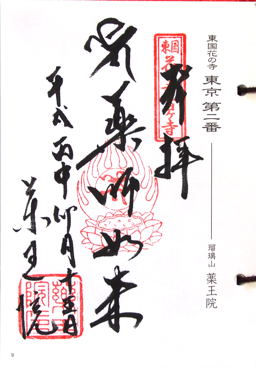 東国花の寺 東京 第二番 ―― 瑠璃山 薬王院
奉拝
薬師如来
平成丙申卯月十五日
薬王院
9